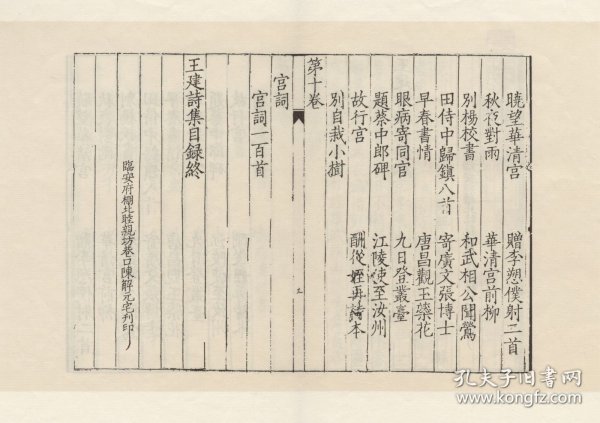 曉望華清宮 贈李愬僕射二首
秋夜對雨 華清宮前柳
別楊校書 和武相公聞鶯
田侍中歸鎮八首 寄廣文張博士
早春書情 唐昌觀玉蘂花
眼病寄同官 九日登叢臺
題蔡中郎碑 江陵使至汝州
故行宮 酬從姪再詩本
別自栽小樹
第十卷
宮詞
宮詞一百首
王建詩集目録終
臨安府棚北睦親坊巷口陳解元宅刊印
孔夫子旧书网
www.kongfz.com